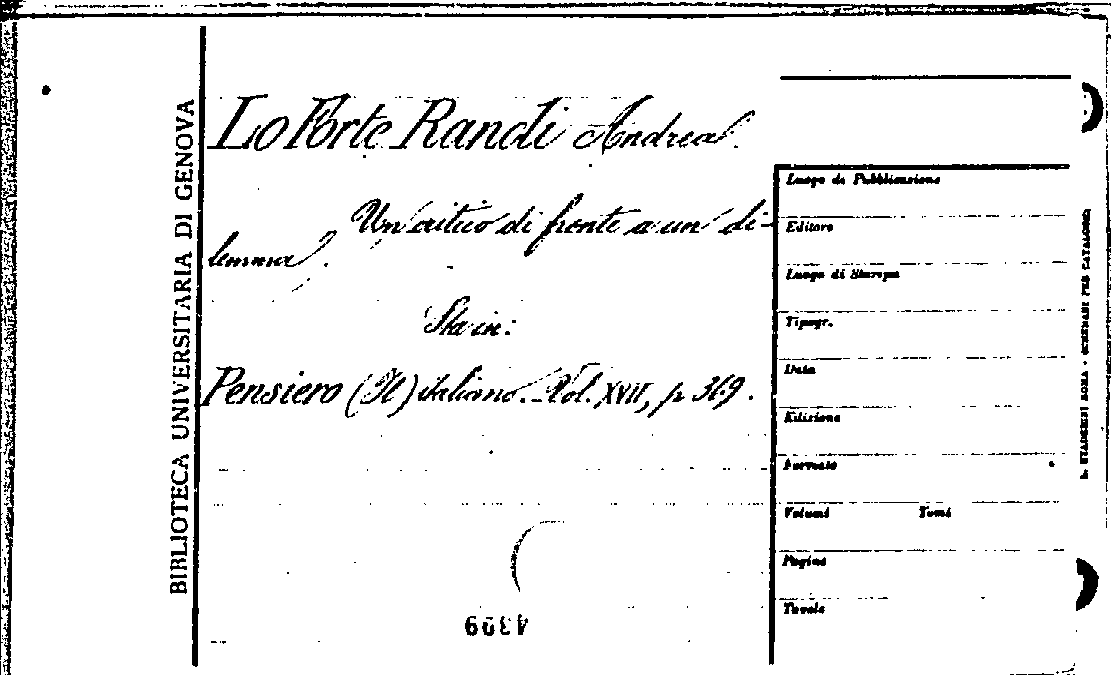 BIBLIOTECA UNIVERSITARIA DI GENOVA
Lo Forte Randi Andrea.
Un critico di fronte a un di-
lemma.
Sta in:
Pensiero (Il) italiano. Vol. XVII, p. 369.
Luogo di Pubblicazione
Editore
Luogo di Stampa
Tipogr.
Data
Edizione
Formato
Volumi Tomi
Pagine
Tavole
STADERINI ROMA - SCHEDARI PER CATALOGHI